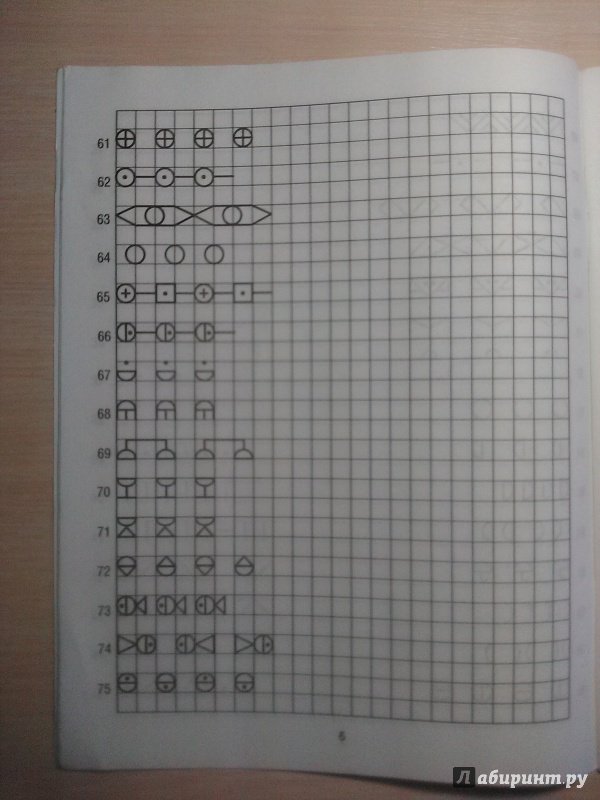 61
62
63
64
65
66
67
68
69
70
71
72
73
74
75
Лабиринт.ру